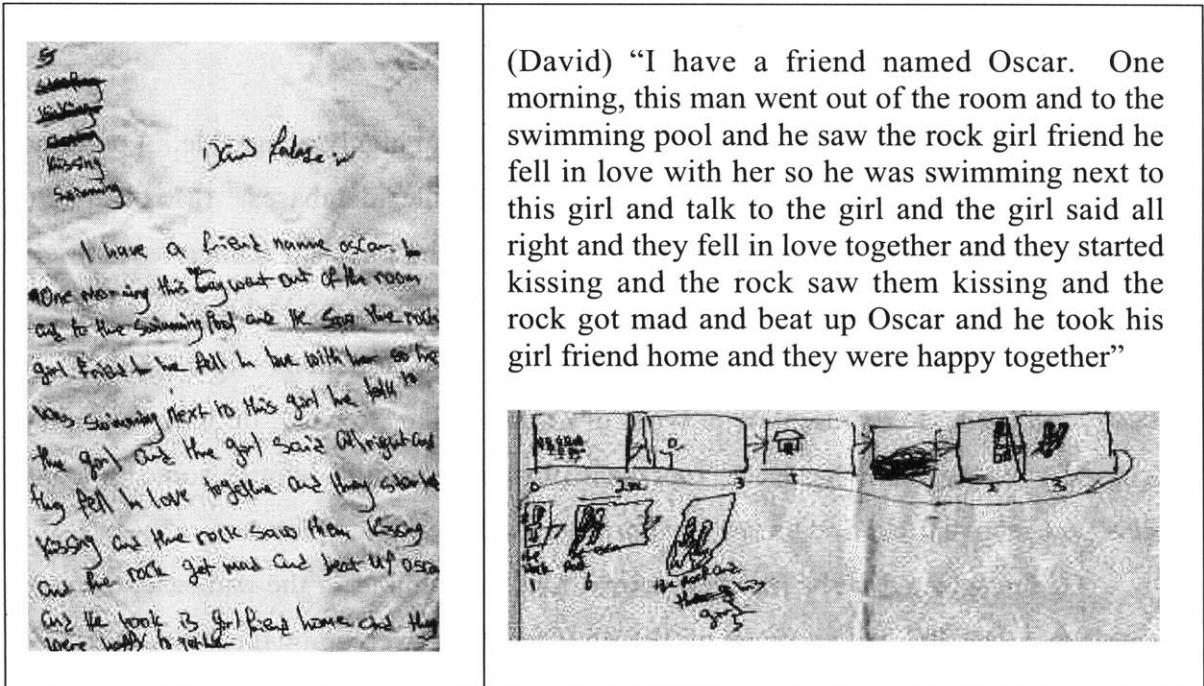 5
Kissing
Swimming
I have a friend namme oscar
One morning this guy went out of the room
and to the Swimming Pool and he saw the rock
girl friend he fell in love with her so he
was swimming next to this girl he talk to
the girl and the girl said All right and
they fell in love together and they started
Kissing and the rock saw them Kissing
and the rock got mad and beat up oscar
and he took is girlfriend home and they
were happy together
(David) “I have a friend named Oscar. One
morning, this man went out of the room and to the
swimming pool and he saw the rock girl friend he
fell in love with her so he was swimming next to
this girl and talk to the girl and the girl said all
right and they fell in love together and they started
kissing and the rock saw them kissing and the
rock got mad and beat up Oscar and he took his
girl friend home and they were happy together”
3
the rock and